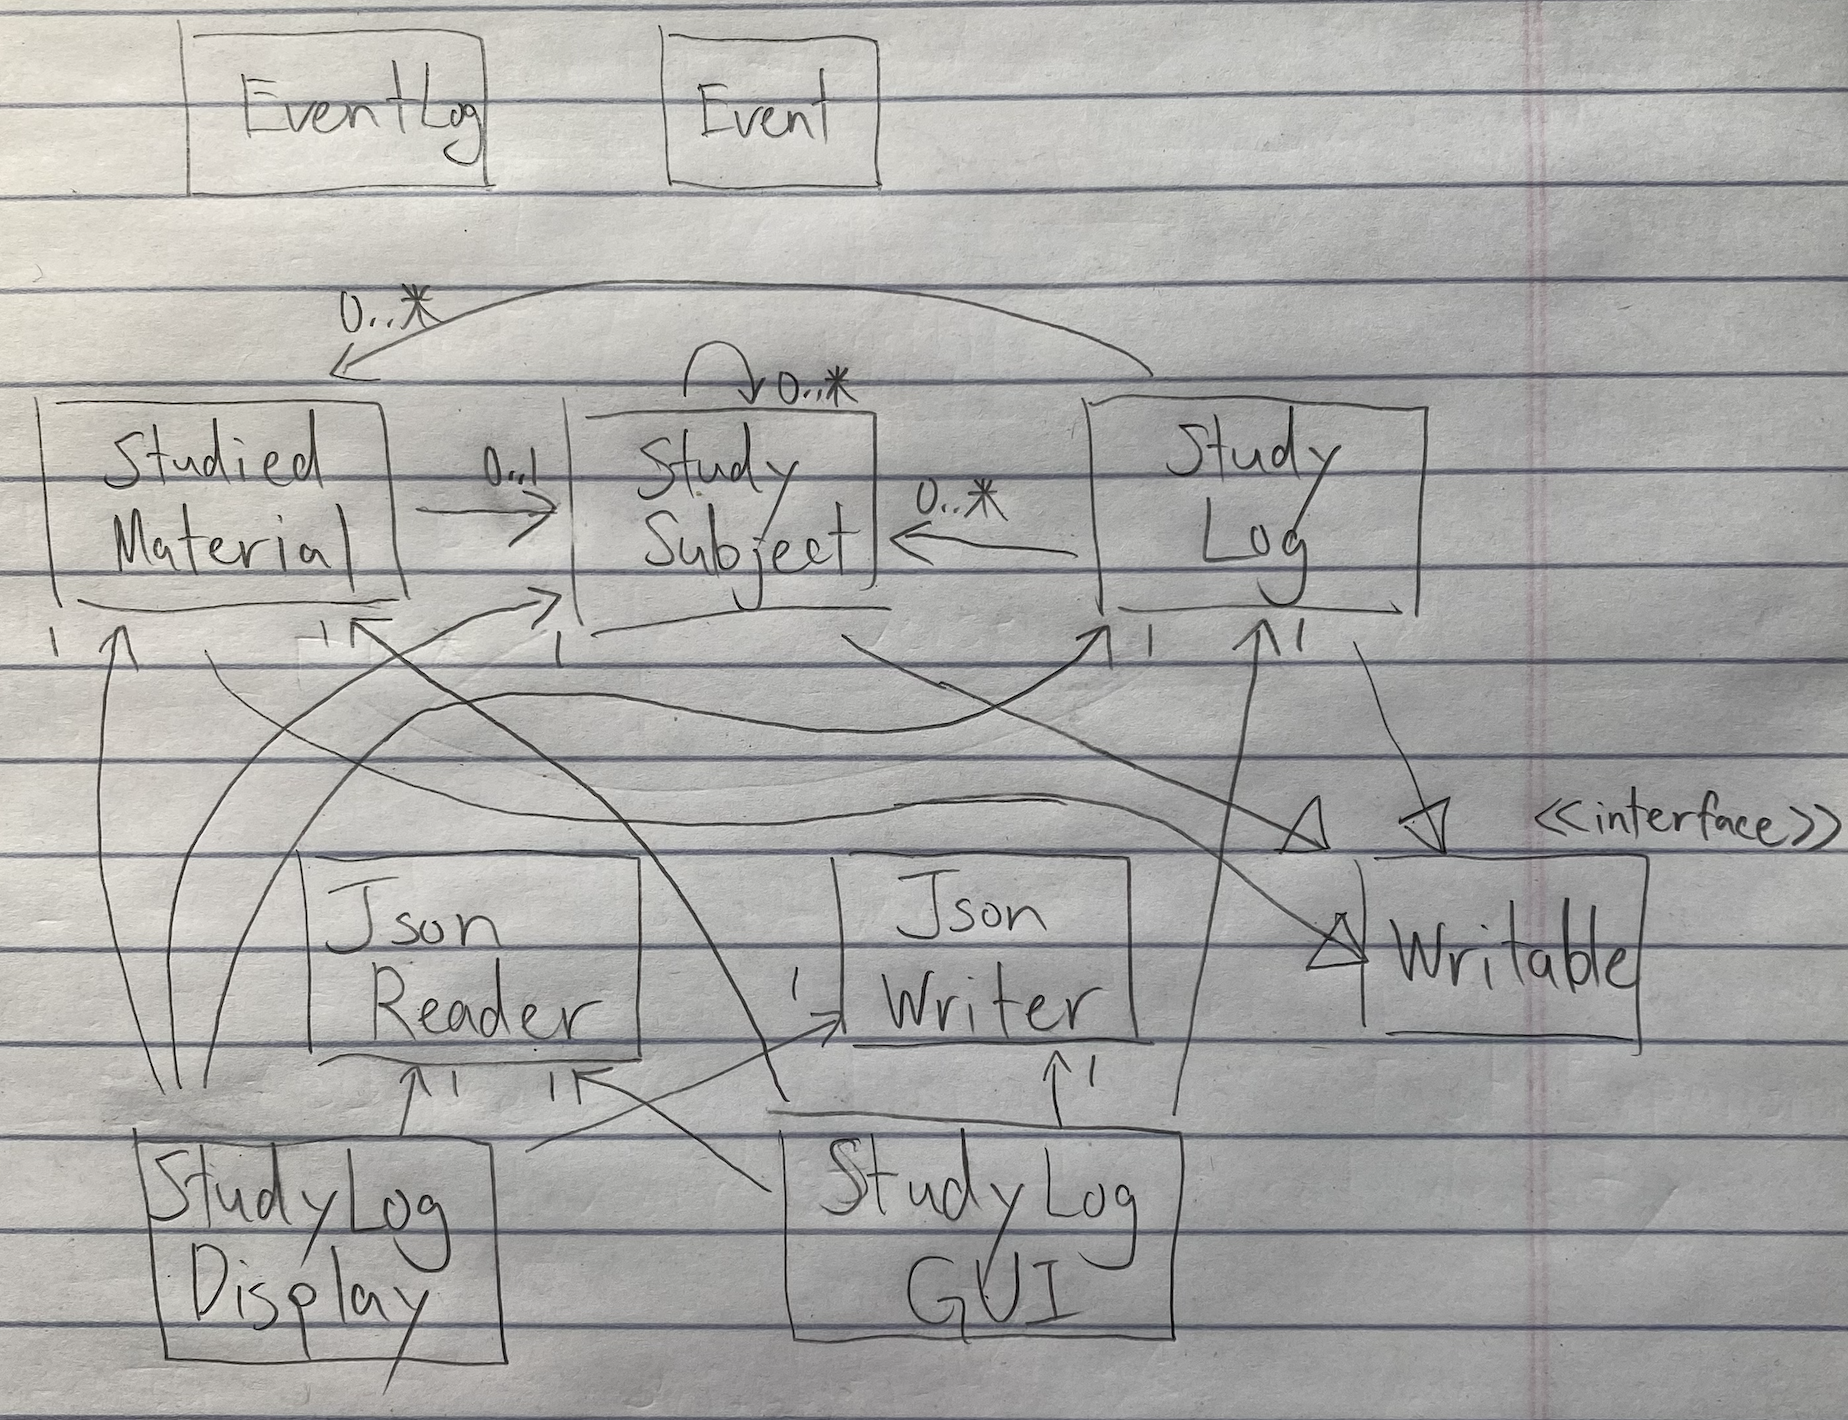 EventLog
Event
0..*
0..*
Studied
Material
0..1
Study
Subject
0..*
Study
Log
1
1
1
1
1
<<interface>>
Json
Reader
1
Json
Writer
Writable
1
1
1
StudyLog
Display
StudyLog
GUI